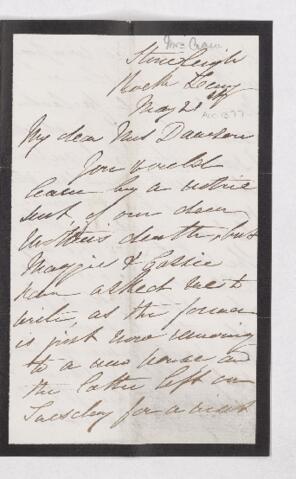 Mrs Craw
Stoneleigh
Rock Ferry
May 28th
Acc 1377
My dear Mrs Dawson
You would
learn by a notice
sent, of our dear
Mother's death, but
Maggie & Gassie
have asked me to
write, as the former
is just now moving
to a new house and
the latter left on
Tuesday for a visit